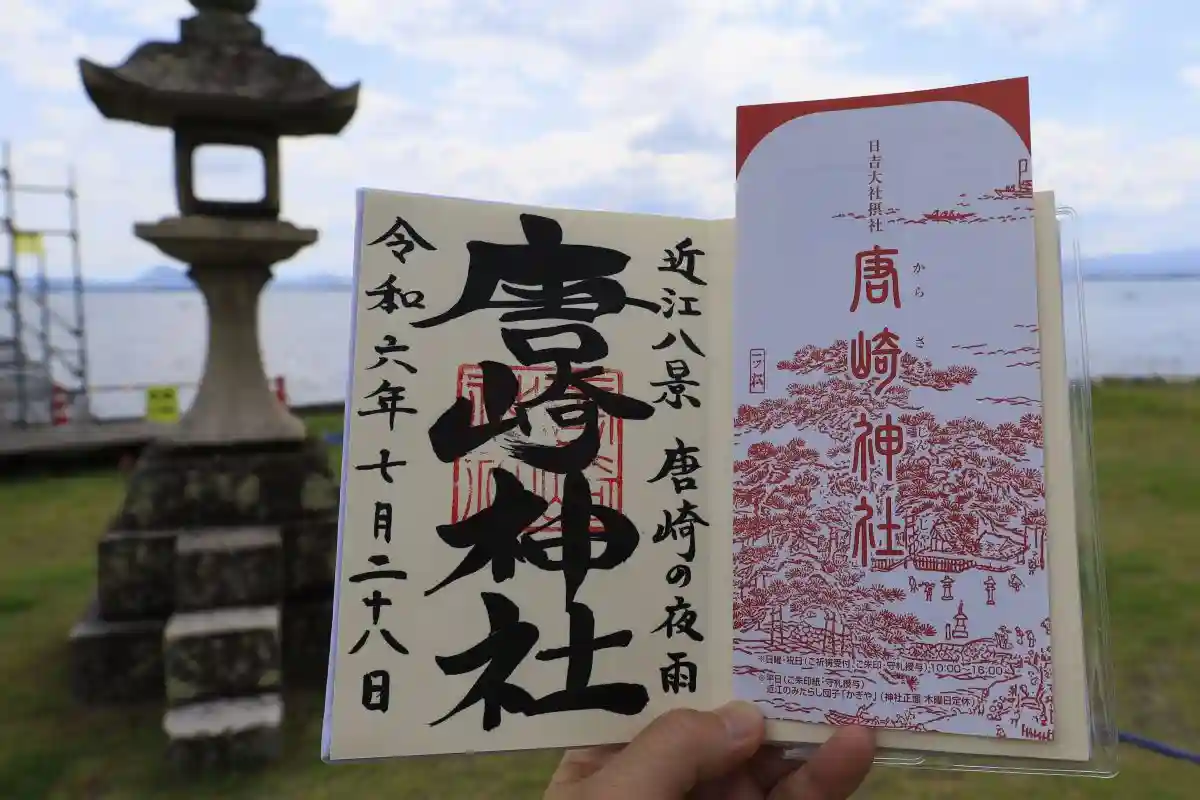 近江八景 唐崎の夜雨
唐崎神社
令和六年七月二十八日
日吉大社摂社
唐崎神社
からさき
一ツ松
※日曜・祝日（ご祈祷受付、ご朱印・守札授与）10:00〜16:00
※平日（ご朱印紙・守札授与）
近江のみたらし団子「かぎや」（神社正面 木曜日定休）